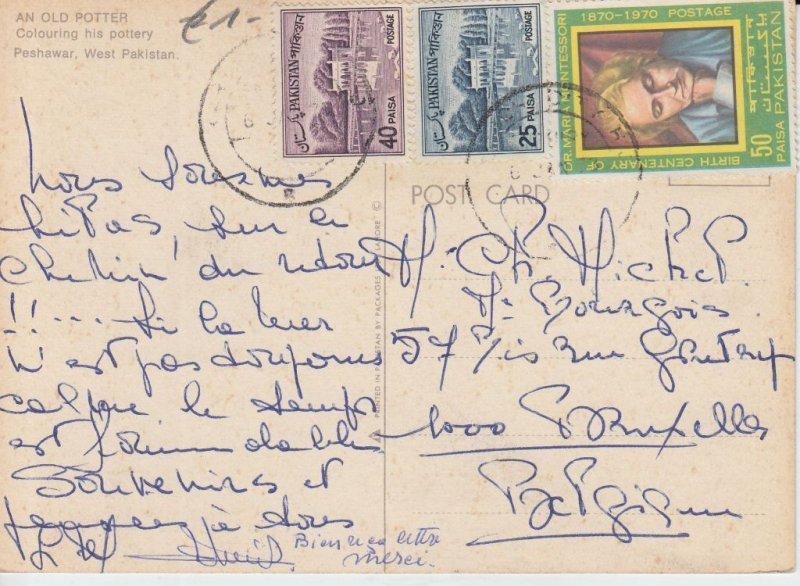 AN OLD POTTER
Colouring his pottery
Peshawar, West Pakistan.
€1-
پاکستان PAKISTAN পাকিস্তান
POSTAGE
40 PAISA
پاکستان PAKISTAN পাকিস্তান
POSTAGE
25 PAISA
1870-1970 POSTAGE
DR. MARIA MONTESSORI
BIRTH CENTENARY OF
50 PAISA PAKISTAN
پاکستان
পাকিস্তান
POST CARD
PRINTED IN PAKISTAN BY PACKAGES
©
Nous sommes
hélas, sur le
chemin du retour
!!... Si la mer
n'est pas
calme le temps
est formidable
Souvenirs et
à
Bien reçu lettre
merci.
M. Ch. Michel.
Bourgeois
57 Bis rue
1000 Bruxelles
Belgium